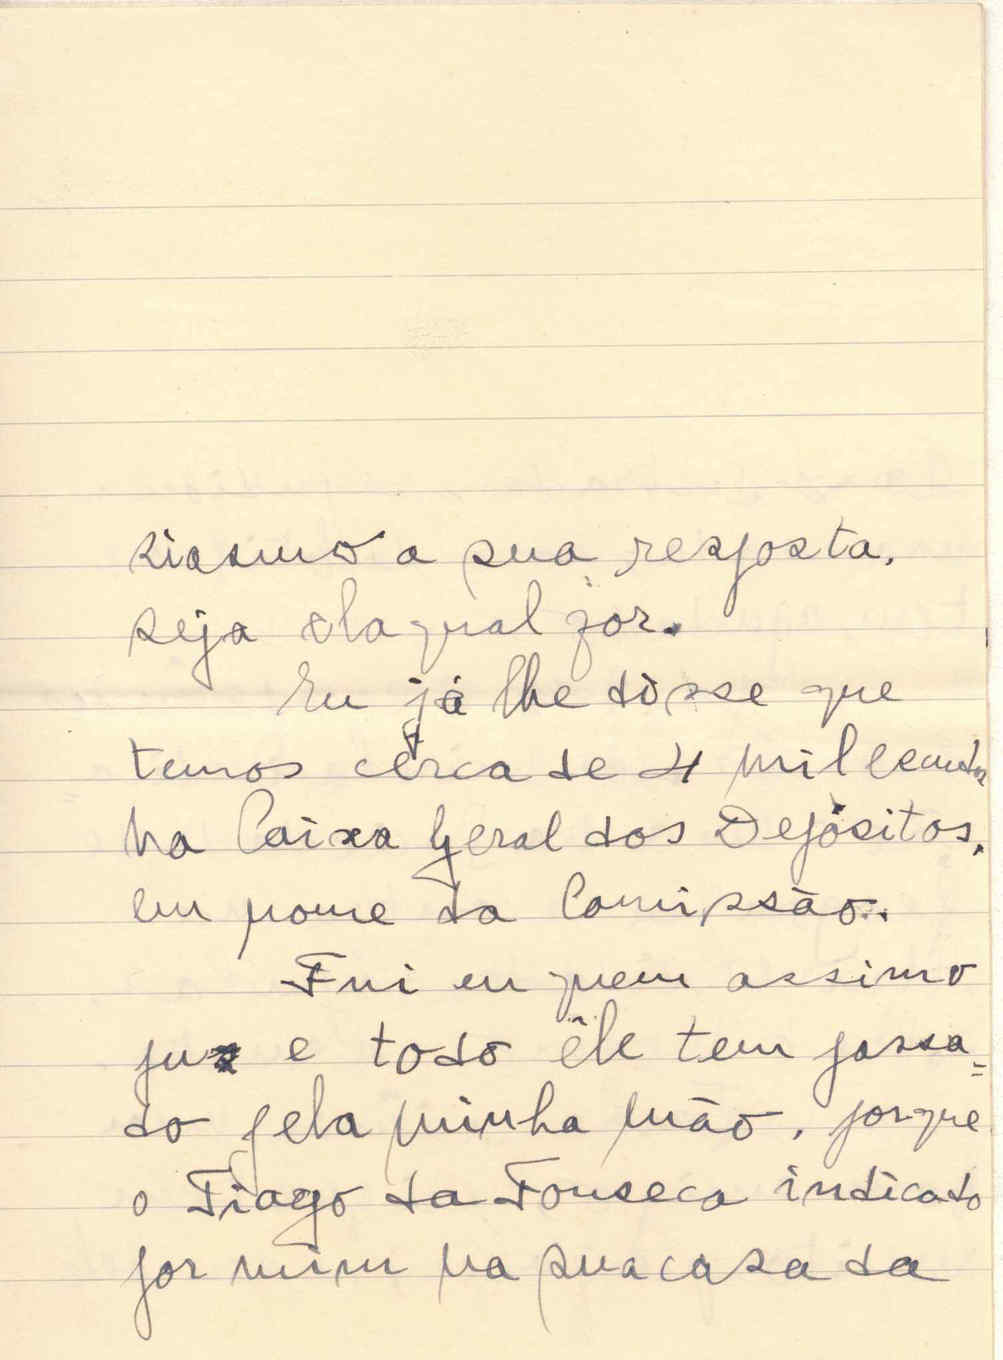 siasmo a sua resposta,
seja ela qual for.
Eu já lhe disse que
temos cêrca de 4 mil escudos
na Caixa Geral dos Depósitos,
em nome da Comissão.
Fui eu quem assimo
e todo êle tem passa=
do pela minha mão, porque
o Tiago da Fonseca indicado
por mim na sua casa da